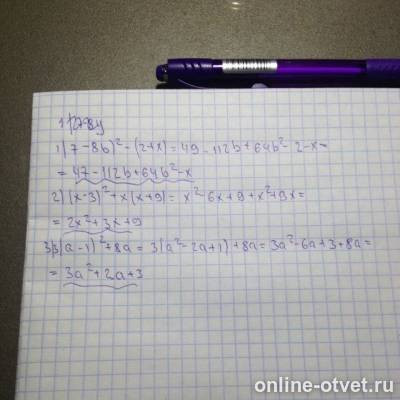 1) (7-8b)² - (2+x) = 49 - 112b + 64b² - 2 - x =
= 47 - 112b + 64b² - x
2) (x-3)² + x(x+9) = x² - 6x + 9 + x² + 9x =
= 2x² + 3x + 9
3) 3(a-1)² + 8a = 3(a² - 2a + 1) + 8a = 3a² - 6a + 3 + 8a =
= 3a² + 2a + 3
online-otvet.ru